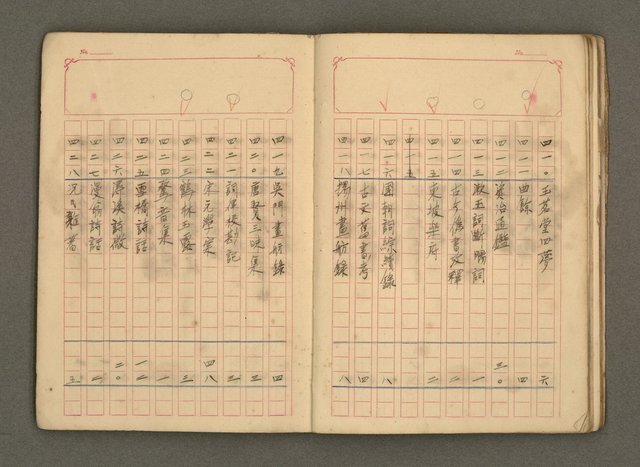 No.
四一〇 玉茗堂四夢 六
四一一 四餘 四
四一二 資治通鑑 三〇
四一三 漱玉詞斷腸詞 一
四一四 古文偽書考釋 二
四一五 東坡樂府 二
四一五
四一六 國朝詞綜續錄 八
四一七 古文舊書考 四
四一八 揚州畫舫錄 八
No.
四一九 吳門畫舫錄 四
四二〇 唐賢三昧集 三
四二一 詞律校勘記 二
四二二 宋元學案 四八
四二三 鶴林玉露 三
四二四 聲音集 一
四二五 雪橋詩話 一二
四二六 潯溪詩徵 二〇
四二七 漫翁詩話 二
四二八 雜著 五